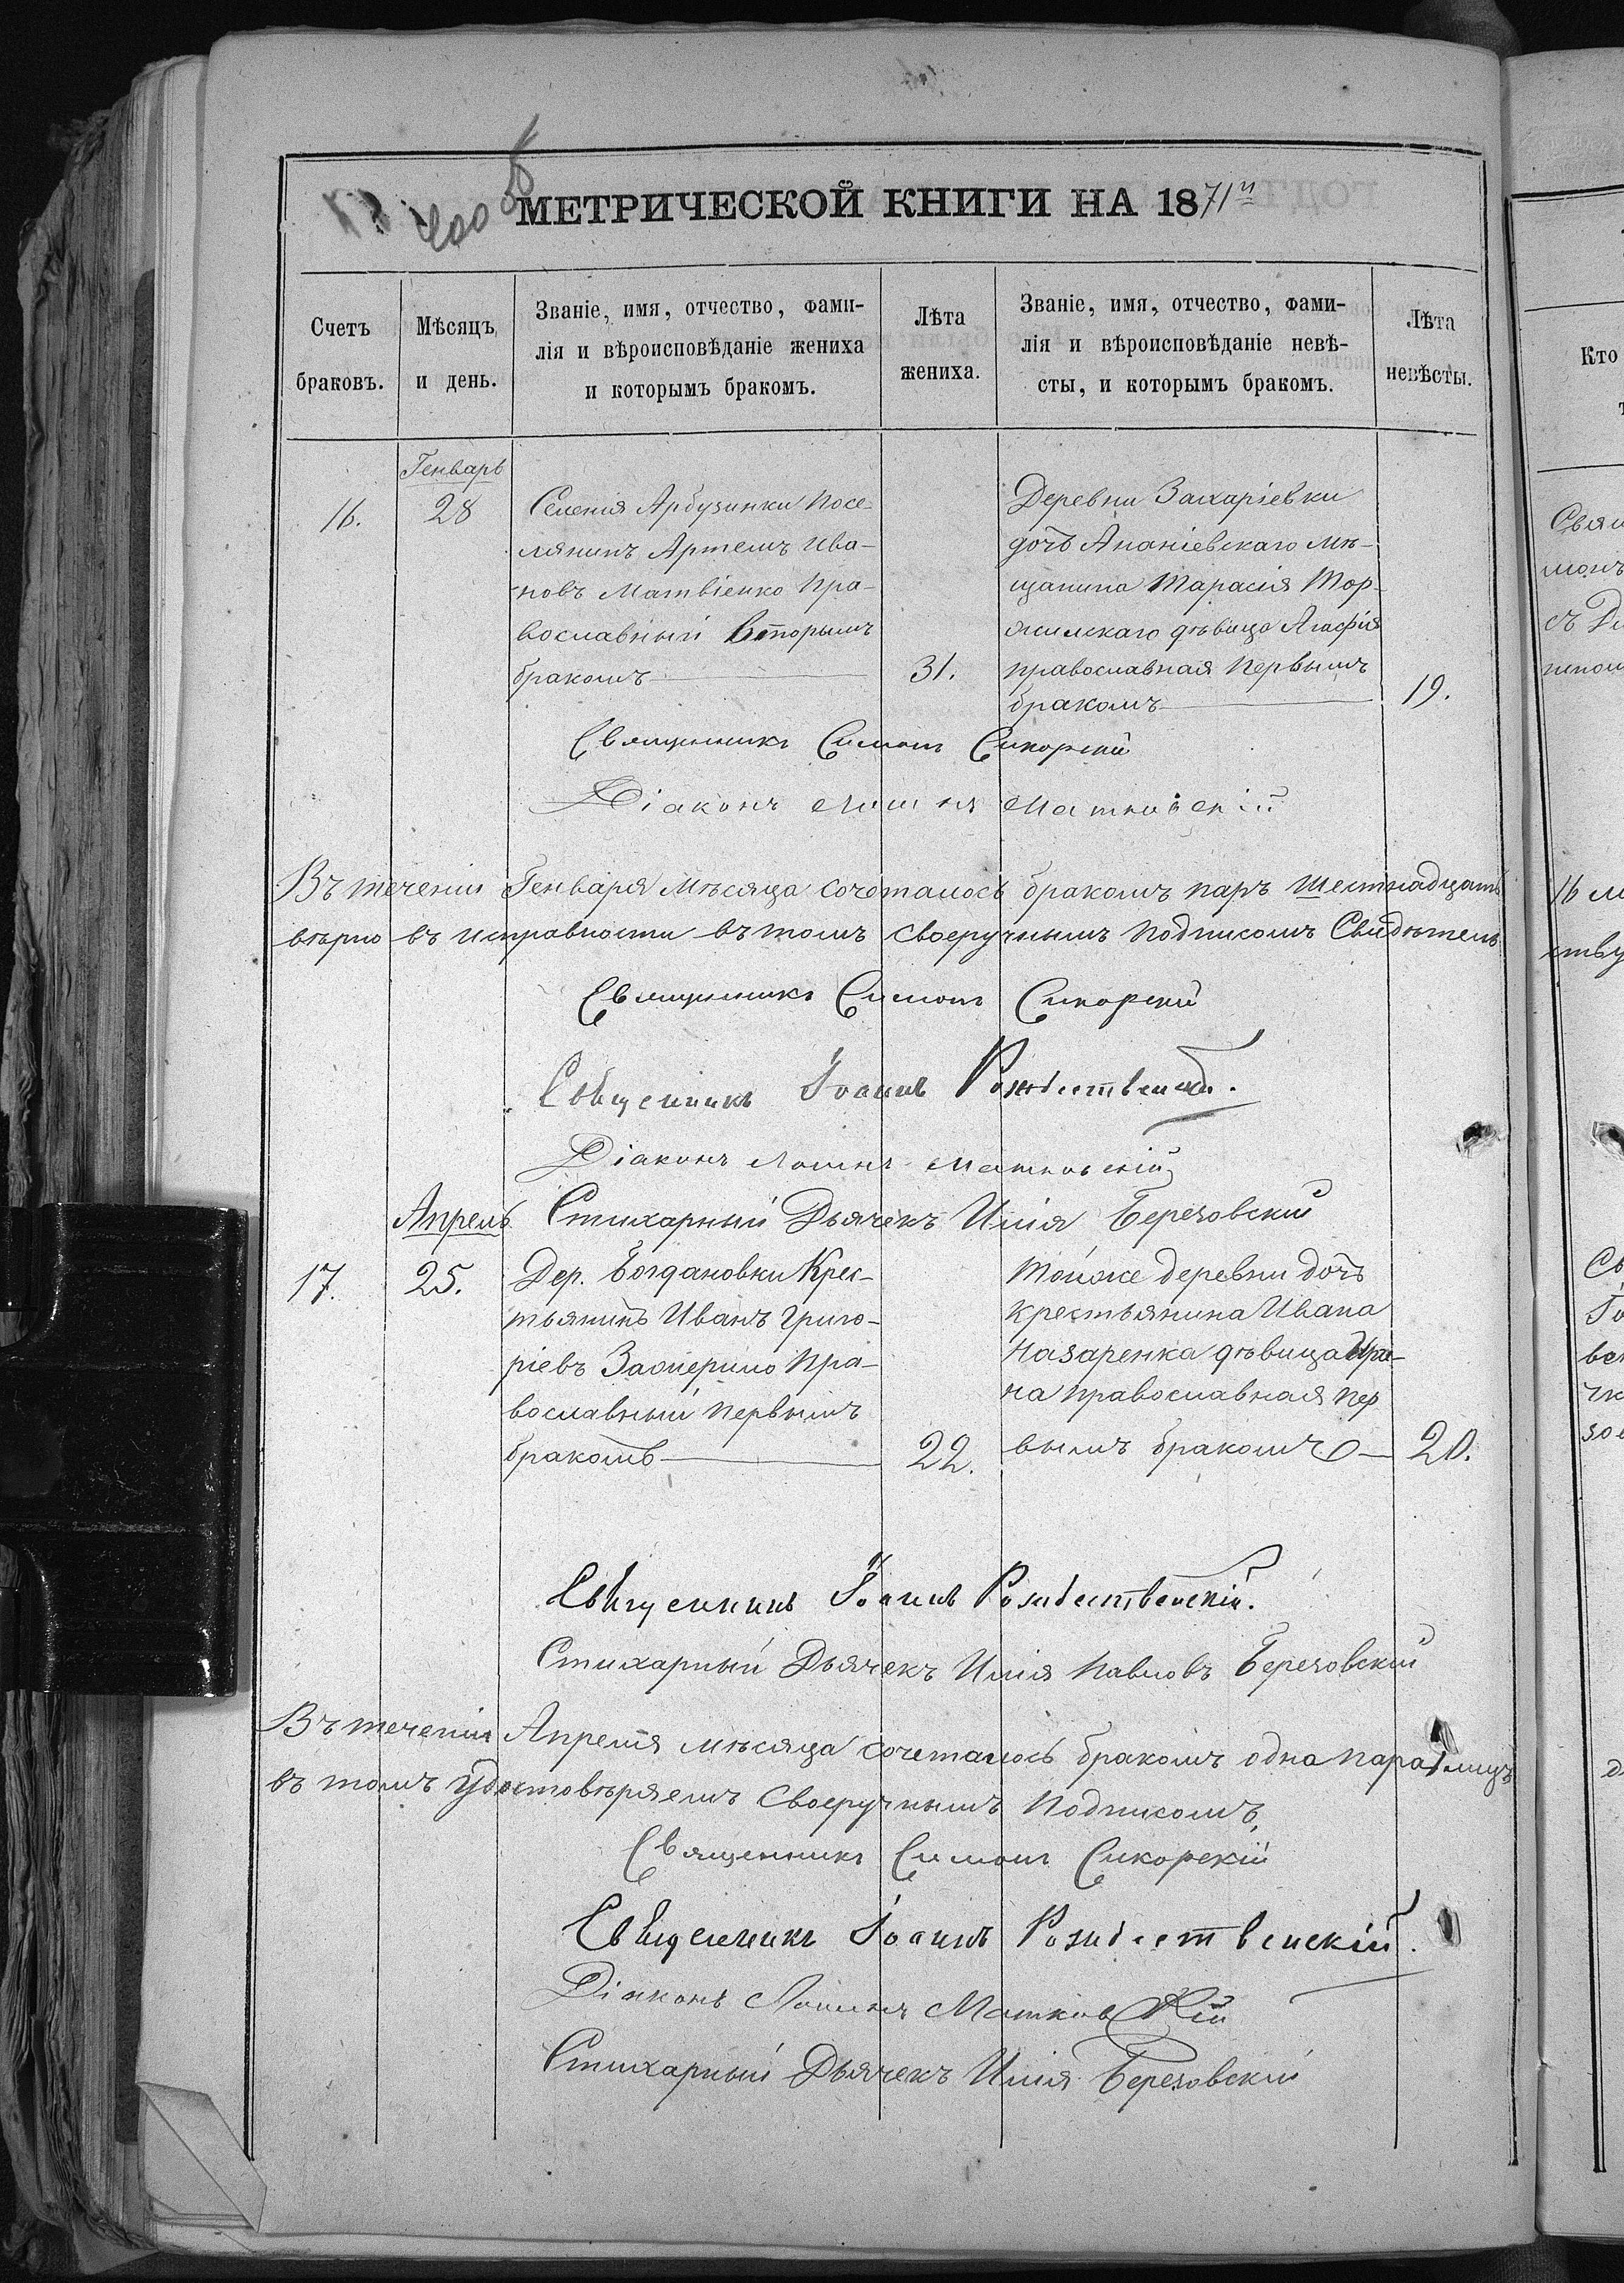 400 об
МЕТРИЧЕСКОЙ КНИГИ НА 1871й
Счетъ браковъ.
Мѣсяцъ и день.
Званіе, имя, отчество, фами-
лія и вѣроисповѣданіе жениха
и которымъ бракомъ.
Лѣта жениха.
Званіе, имя, отчество, фами-
лія и вѣроисповѣданіе невѣ-
сты, и которымъ бракомъ.
Лѣта невѣсты.
Генварь
16.
28
Селенія Арбузинки посе-
лянинъ Артемъ Ива-
новъ Матвіенко пра-
вославный вторымъ
бракомъ
31.
Деревни Захаріевки
дочь Ананіевскаго мѣ-
щанина Тарасія
дѣвица Агафія
православная первымъ
бракомъ
19.
Священникъ Симонъ Сикорскій
Діаконъ Матковскій
Въ теченіи Генваря мѣсяца сочеталось бракомъ паръ шестнадцать
вѣрно въ исправности въ томъ своеручнымъ подписомъ свидѣтель
Священникъ Симонъ Сикорскій
Священникъ Іоаннъ Рождественскій.
Діаконъ Матковскій
Стихарный Дьячекъ Илія Березовскій
Апрель
17.
25.
Дер. Богдановки крес-
тьянинъ Иванъ Григо-
ріевъ пра-
вославный первымъ
бракомъ
22.
Тойже деревни дочь
крестьянина Ивана
Назаренка дѣвица Ири-
на православная пер
вымъ бракомъ
20.
Священникъ Іоаннъ Рождественскій.
Стихарный Дьячекъ Илія Павловъ Березовскій
Въ теченіи Апреля мѣсяца сочеталось бракомъ одна пара лицъ
въ томъ удостовѣряемъ своеручнымъ подписомъ,
Священникъ Симонъ Сикорскій
Священникъ Іоаннъ Рождественскій.
Діаконъ Матковскій
Стихарный Дьячекъ Илія Березовскій
Кто
16